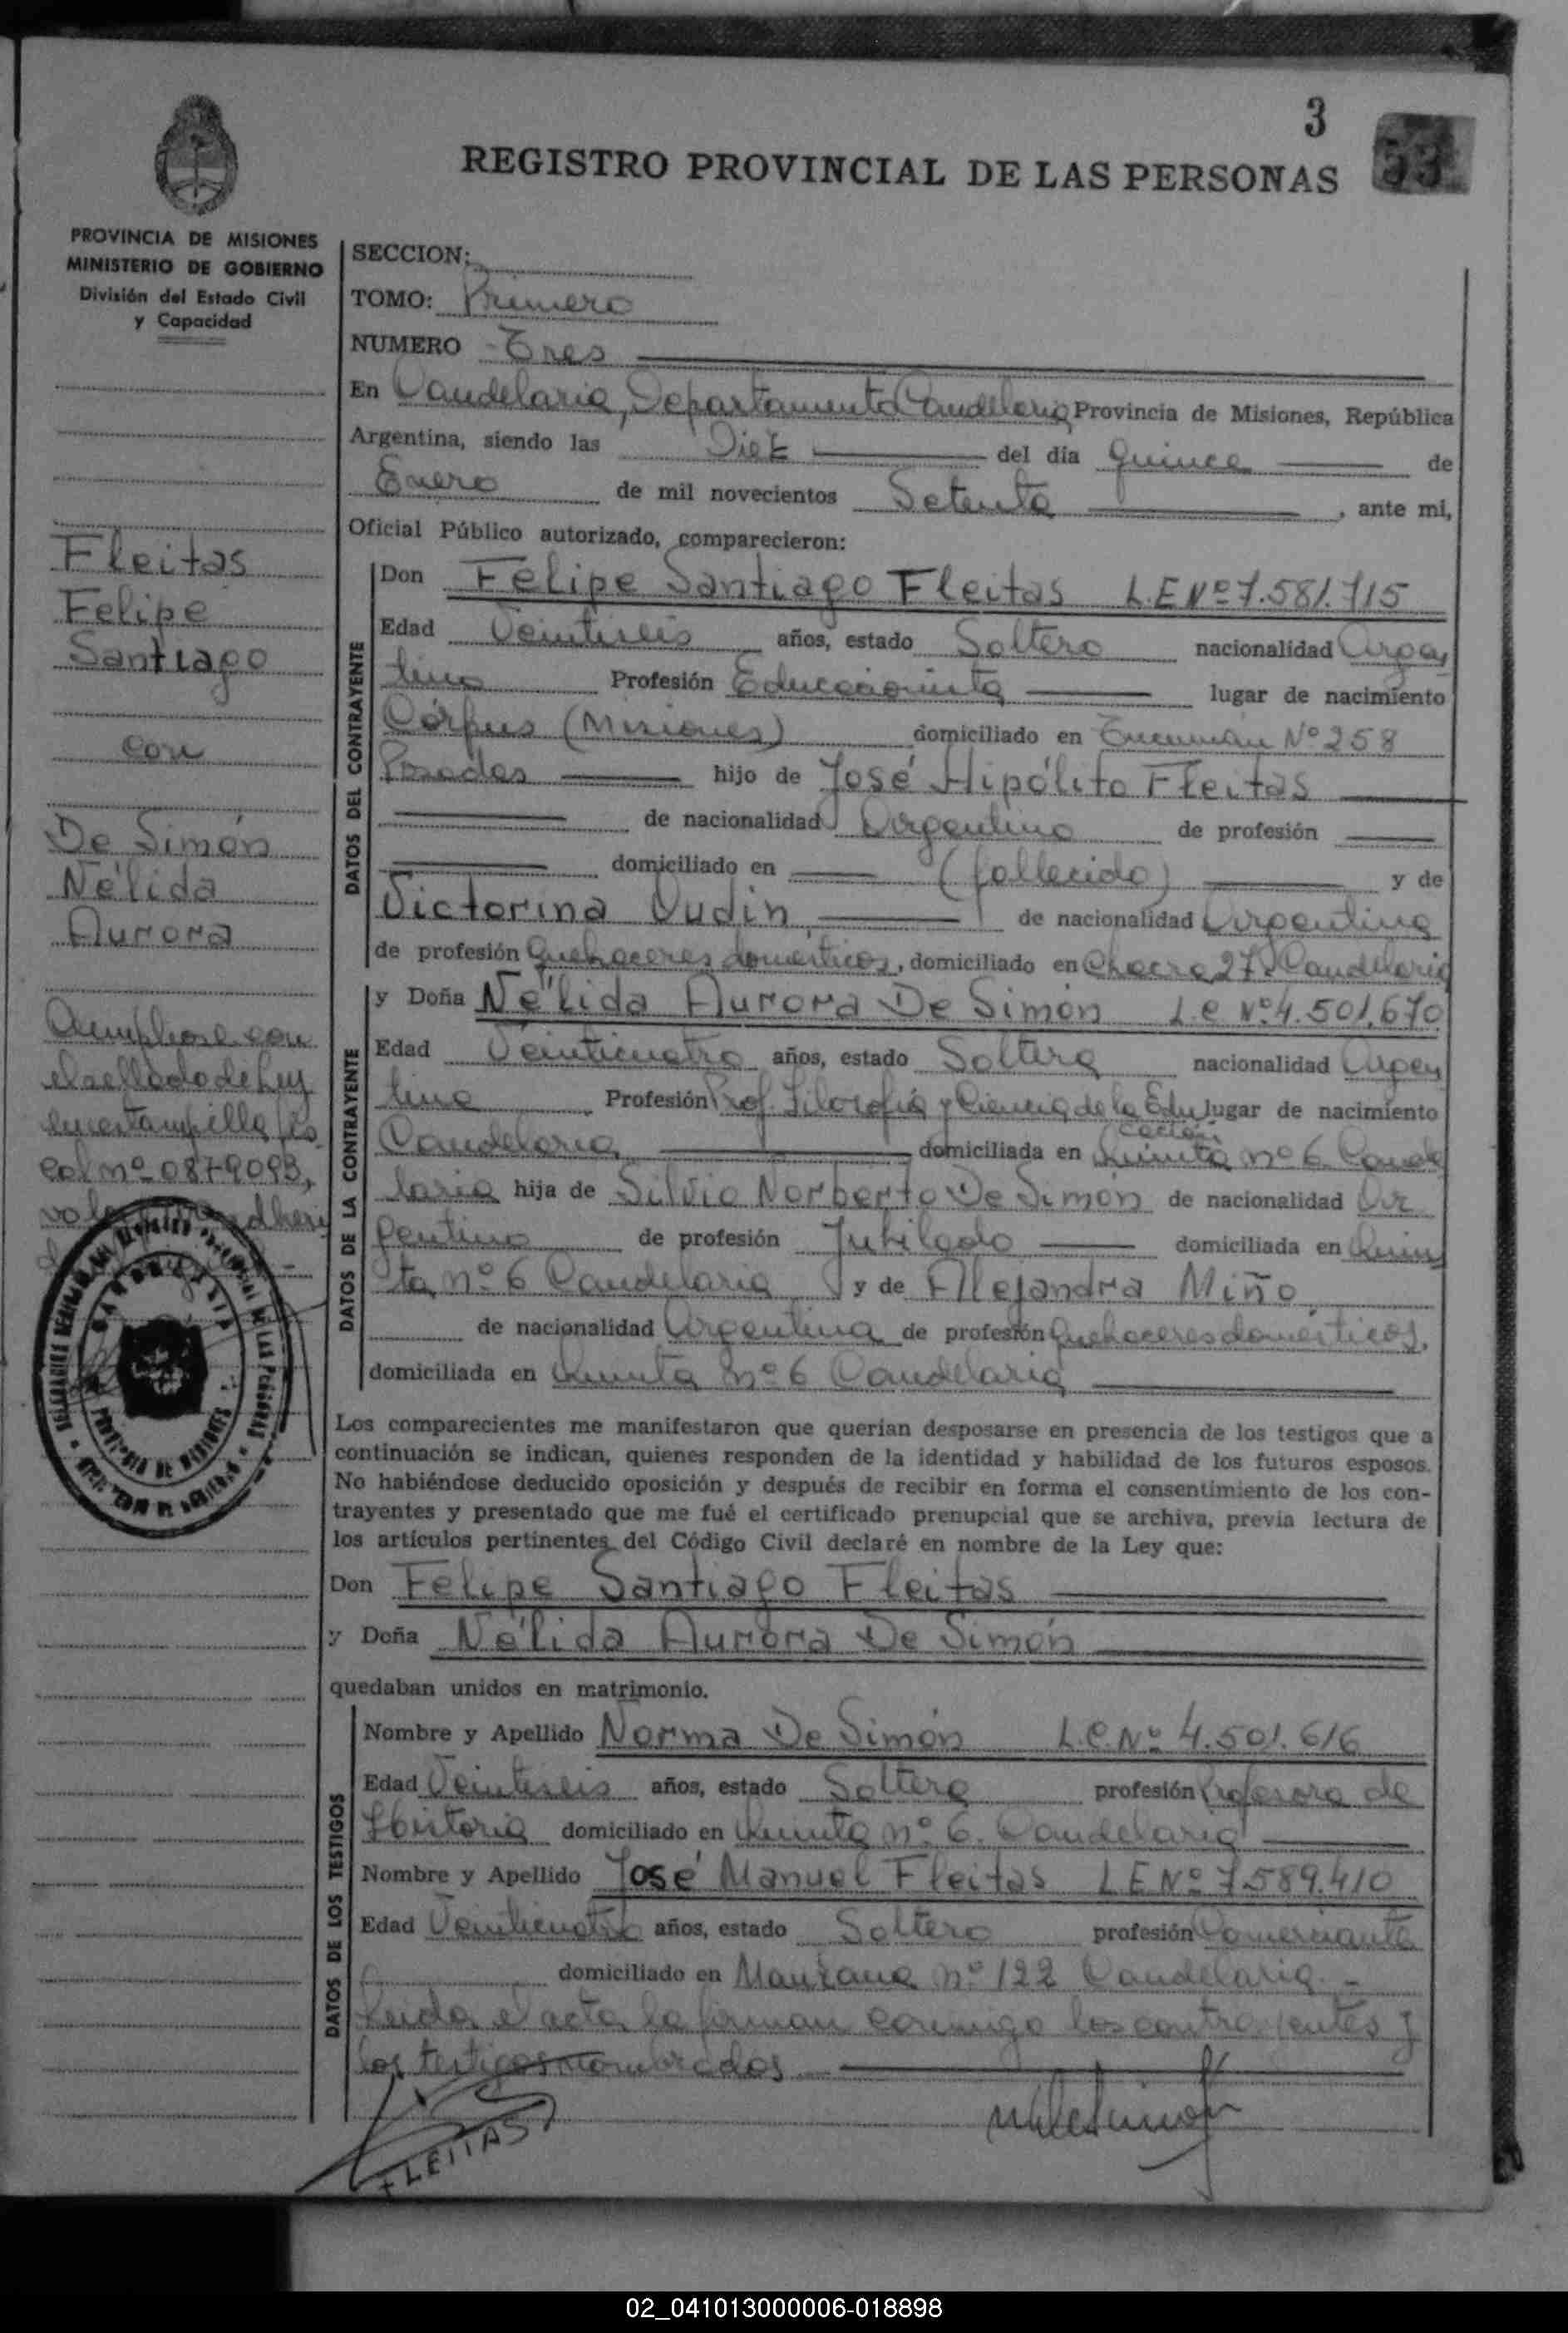 3
53
REGISTRO PROVINCIAL DE LAS PERSONAS
PROVINCIA DE MISIONES
MINISTERIO DE GOBIERNO
División del Estado Civil
y Capacidad
Fleitas
Felipe
Santiago
con
De Simón
Nélida
Aurora
el sellado de Ley
en estampilla fis
cal nº 0879093,
SECCION:
TOMO: Primero
NUMERO - Tres
En Candelaria, Departamento Candelaria Provincia de Misiones, República
Argentina, siendo las Diez del día quince de
Enero de mil novecientos Setenta, ante mi,
Oficial Público autorizado, comparecieron:
DATOS DEL CONTRAYENTE
Don Felipe Santiago Fleitas L.E Nº 7.581.715
Edad Veintiseis años, estado Soltero nacionalidad Argen
tino Profesión Educacionista lugar de nacimiento
Córpus (Misiones) domiciliado en Tucumán Nº 258
Posadas hijo de José Hipólito Fleitas
de nacionalidad Argentino de profesión
domiciliado en (fallecido) y de
Victorina Cudin de nacionalidad Argentina
de profesión Quehaceres domésticos, domiciliado en Chacra 27. Candelaria
DATOS DE LA CONTRAYENTE
y Doña Nélida Aurora De Simón L.C Nº 4.501.670
Edad Veinticuatro años, estado Soltera nacionalidad Argen
tina Profesión Prof. Filosofía y Ciencia de la Edu lugar de nacimiento
cación
Candelaria domiciliada en Quinta nº 6 Cande
laria hija de Silvio Norberto De Simón de nacionalidad Ar
gentino de profesión Jubilado domiciliada en Quin
ta nº 6 Candelaria y de Alejandra Miño,
de nacionalidad Argentina de profesión Quehaceres domésticos,
domiciliada en Quinta nº 6 Candelaria
Los comparecientes me manifestaron que querían desposarse en presencia de los testigos que a
continuación se indican, quienes responden de la identidad y habilidad de los futuros esposos.
No habiéndose deducido oposición y después de recibir en forma el consentimiento de los con-
trayentes y presentado que me fué el certificado prenupcial que se archiva, previa lectura de
los artículos pertinentes del Código Civil declaré en nombre de la Ley que:
Don Felipe Santiago Fleitas
y Doña Nélida Aurora De Simón
quedaban unidos en matrimonio.
DATOS DE LOS TESTIGOS
Nombre y Apellido Norma De Simón L.C. Nº 4.501.616
Edad Veintiseis años, estado Soltera profesión Profesora de
Historia domiciliado en Quinta nº 6. Candelaria
Nombre y Apellido José Manuel Fleitas L.E Nº 7.589.410
Edad Veinticuatro años, estado Soltero profesión Comerciante
domiciliado en Manzana nº 122 Candelaria. -
Leida el acta la firman conmigo los contrayentes y
los testigos nombrados
FLEITAS
02_041013000006-018898